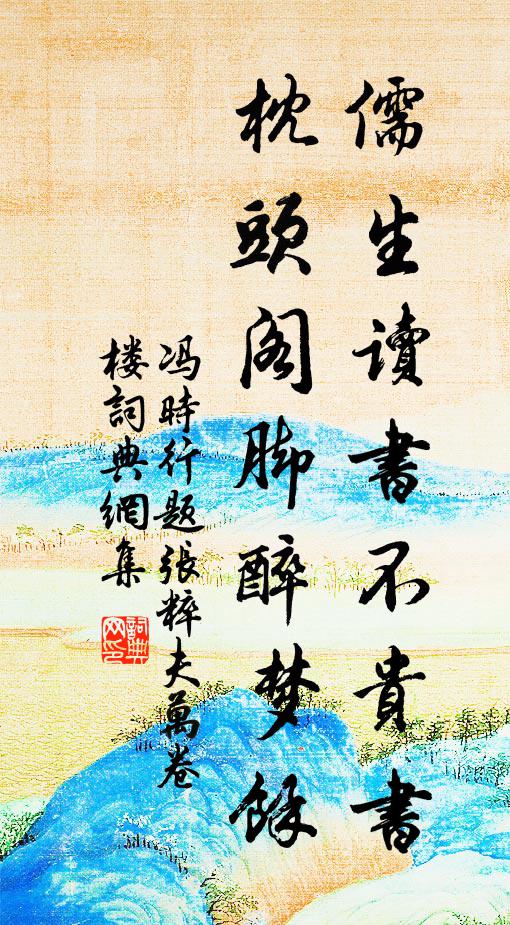 儒生讀書不貴書
枕頭阁脚醉梦餘
冯時行题張粹夫萬卷
楼詞典網集
詞典
网印